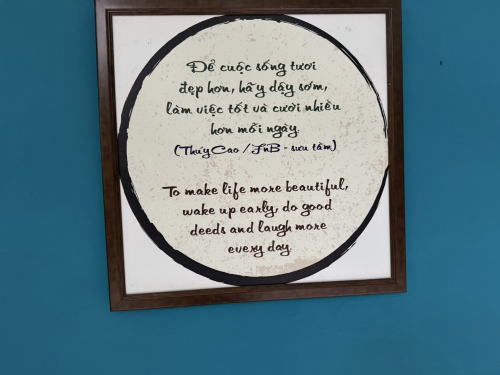 Để cuộc sống tươi
đẹp hơn, hãy dậy sớm,
làm việc tốt và cười nhiều
hơn mỗi ngày.
(Thúy Cao / FnB - sưu tầm)
To make life more beautiful,
wake up early, do good
deeds and laugh more
every day.